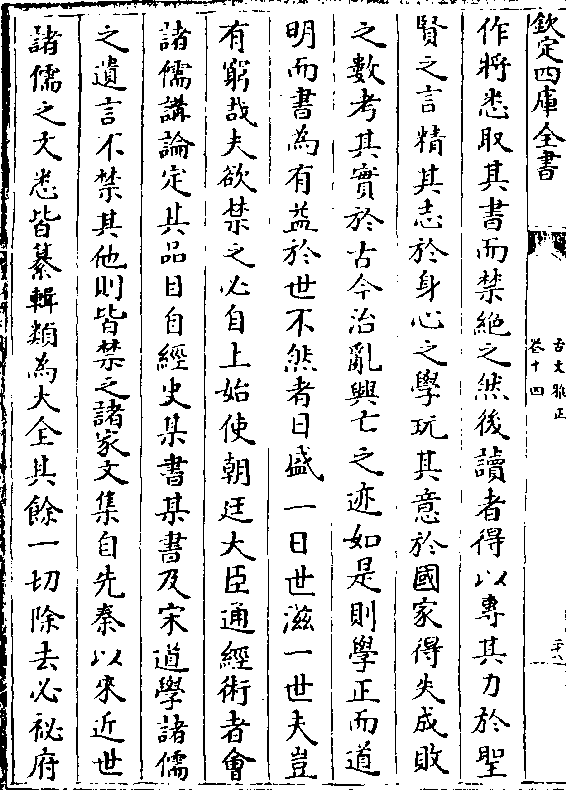 欽定四庫全書
古文雅正
卷十四
作將悉取其書而禁絕之然後讀者得以專其力於聖
賢之言精其志於身心之學玩其意於國家得失成敗
之數考其實於古今治亂興亡之迹如是則學正而道
明而書為有益於世不然者日盛一日世滋一世夫豈
有窮哉夫欲禁之必自上始使朝廷大臣通經術者會
諸儒講論定其品目自經史某書某書及宋道學諸儒
之遺言不禁其他則皆禁之諸家文集自先秦以來近世
諸儒之文悉皆纂輯類為大全其餘一切除去必祕府